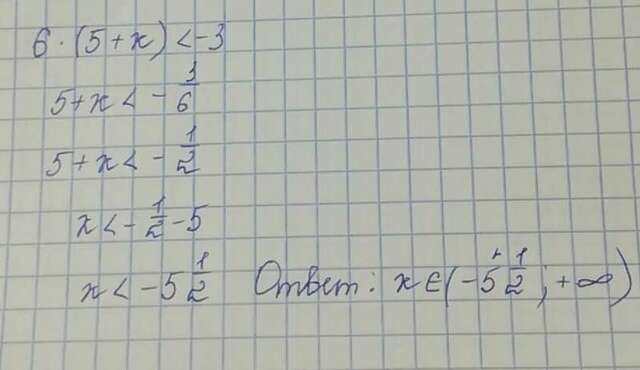 6 · (5 + x) < -3
5 + x < - 3/6
5 + x < - 1/2
x < - 1/2 - 5
x < -5 1/2 Ответ: x ∈ (-5 1/2; +∞)